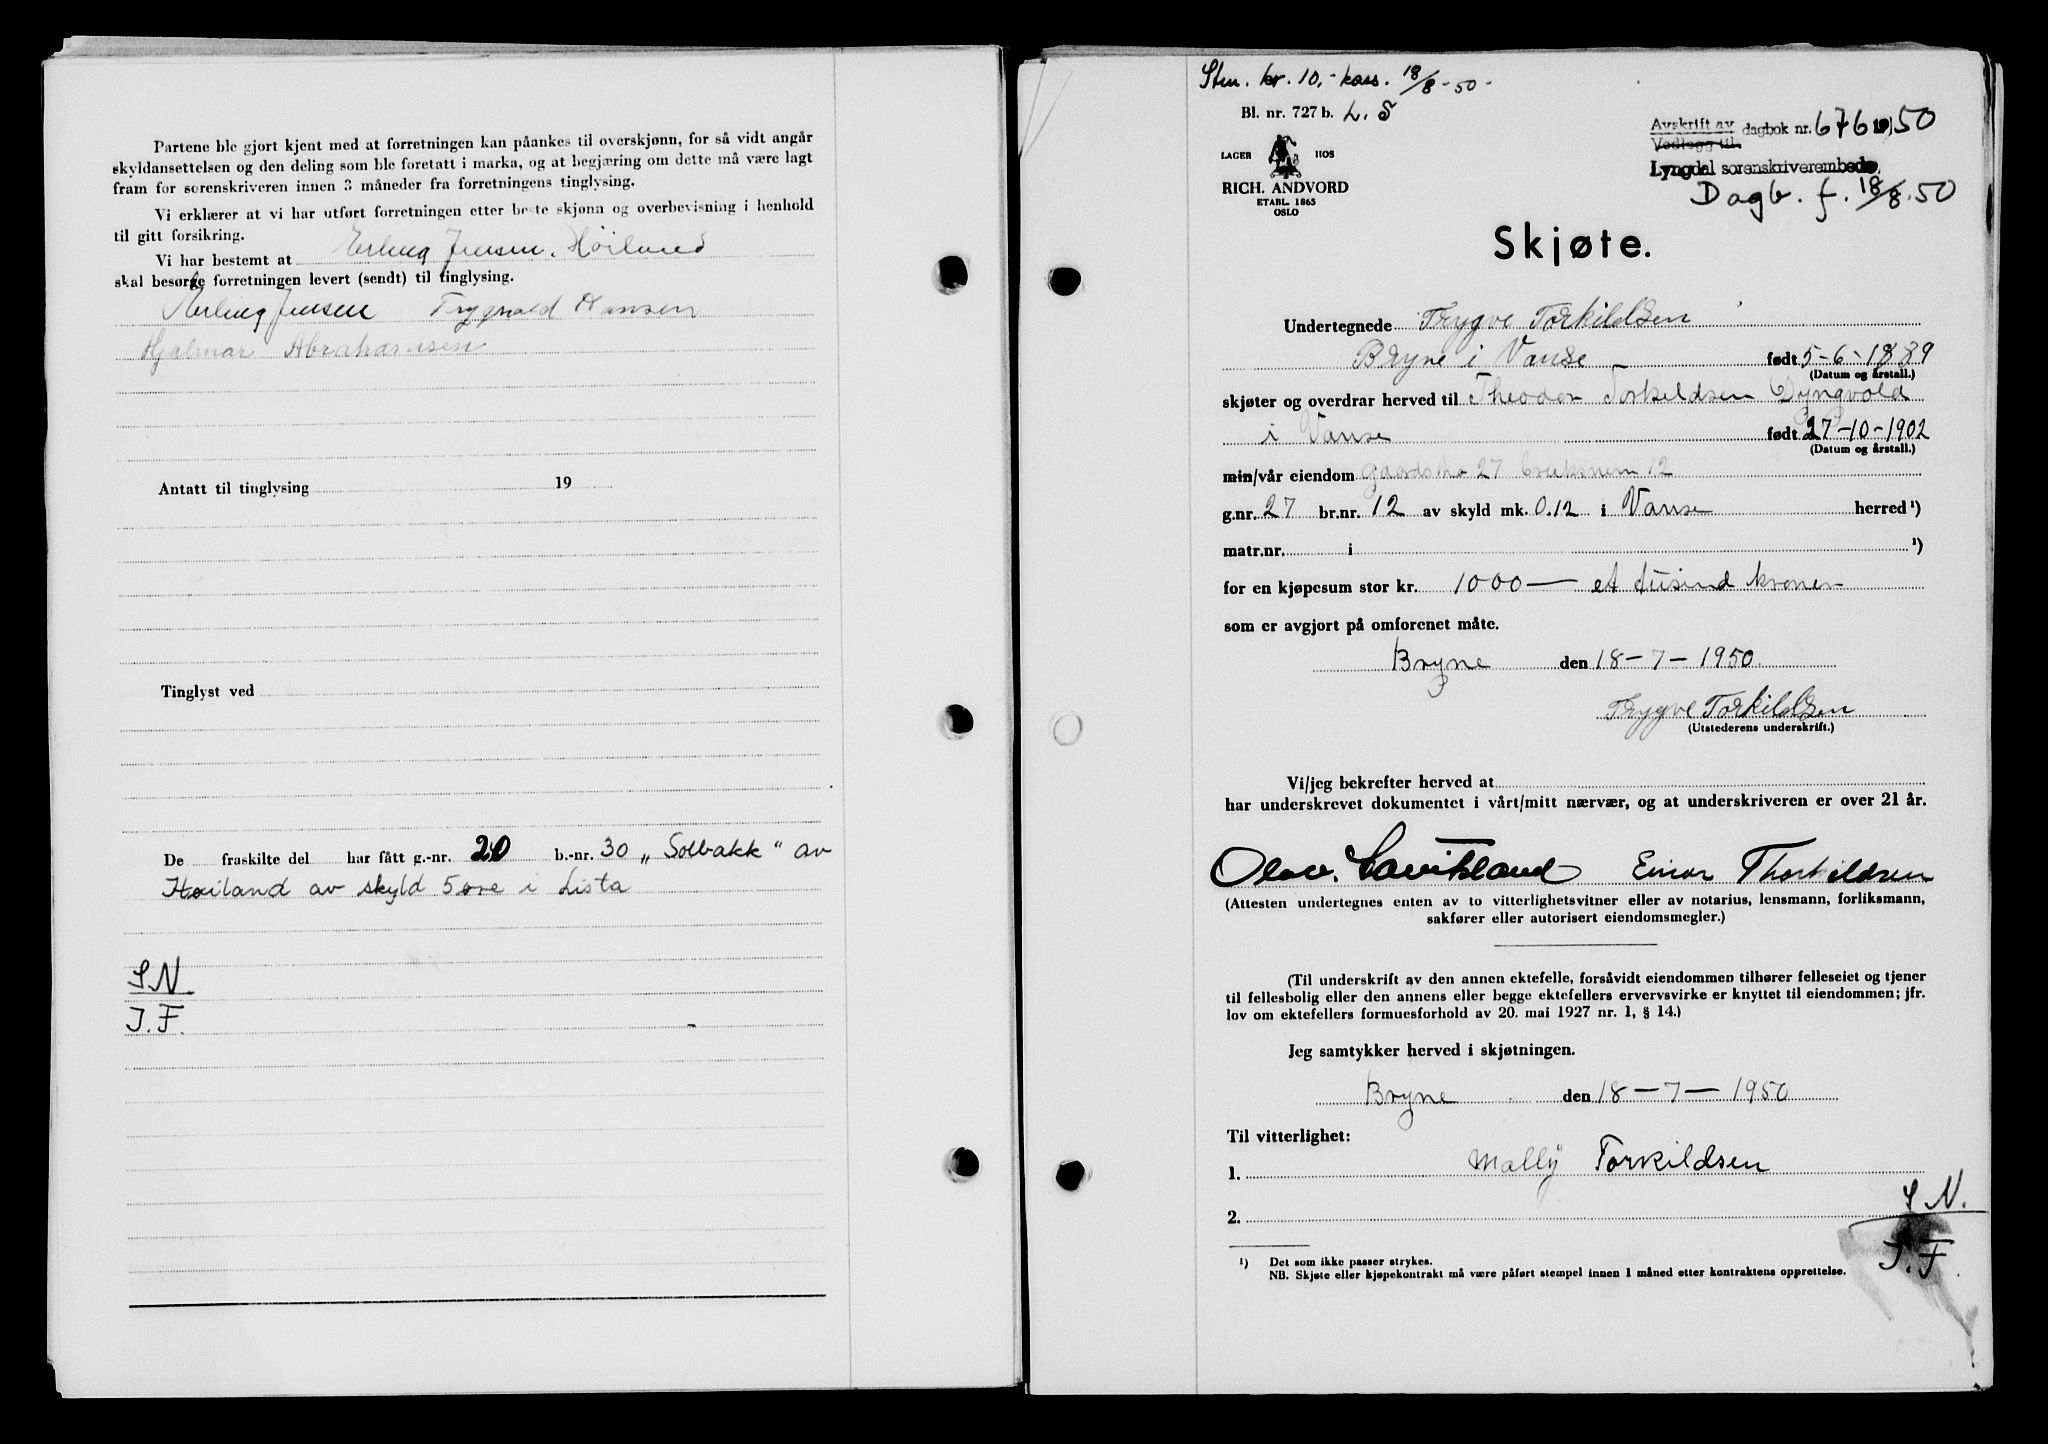 Partene ble gjort kjent med at forretningen kan påankes til overskjønn, for så vidt angår
skyldansettelsen og den deling som ble foretatt i marka, og at begjæring om dette må være lagt
fram for sorenskriveren innen 3 måneder fra forretningens tinglysing.
Vi erklærer at vi har utført forretningen etter beste skjønn og overbevisning i henhold
til gitt forsikring.
Vi har bestemt at Erling Jensen, Höiland
skal besørge forretningen levert (sendt) til tinglysing.
Erling Jensen Trygvald Hansen
Hjalmar Abrahamsen
Antatt til tinglysing 19
Tinglyst ved
De fraskilte del har fått g.-nr. 20 b.-nr. 30 „Solbakk“ av
Høiland av skyld 5 øre i Lista
S N
J. F.
Stm. kr. 10,- kass. 18/8-50-
Bl. nr. 727 b. L. S
LAGER HOS
RICH. ANDVORD
ETABL. 1865
OSLO
Avskrift av dagbok nr. 676 1950
Vedlegg til
Lyngdal sorenskriverembede.
Dagb. f. 18/8.50
Skjøte.
Undertegnede Trygve Torkildsen
Bryne i Vanse født 5-6-1889
(Datum og årstall.)
skjøter og overdrar herved til Theodor Torkildsen Dyngvold
i Vanse født 27-10-1902
(Datum og årstall.)
min/vår eiendom gaardsno 27 bruksnem 12
g.nr. 27 br.nr. 12 av skyld mk. 0.12 i Vanse herred ¹)
matr.nr. i ¹)
for en kjøpesum stor kr. 1000— et tusind kroner
som er avgjort på omforenet måte.
Bryne den 18-7-1950
Trygve Torkildsen
(Utstederens underskrift.)
Vi/jeg bekrefter herved at
har underskrevet dokumentet i vårt/mitt nærvær, og at underskriveren er over 21 år.
Olav. Lavikland Einar Thorkildsen
(Attesten undertegnes enten av to vitterlighetsvitner eller av notarius, lensmann, forliksmann,
sakfører eller autorisert eiendomsmegler.)
(Til underskrift av den annen ektefelle, forsåvidt eiendommen tilhører felleseiet og tjener
til fellesbolig eller den annens eller begge ektefellers ervervsvirke er knyttet til eiendommen; jfr.
lov om ektefellers formuesforhold av 20. mai 1927 nr. 1, § 14.)
Jeg samtykker herved i skjøtningen.
Bryne den 18-7-1950
Til vitterlighet:
Mally Torkildsen
1.
2.
S N.
J. F.
¹) Det som ikke passer strykes.
NB. Skjøte eller kjøpekontrakt må være påført stempel innen 1 måned etter kontraktens opprettelse.